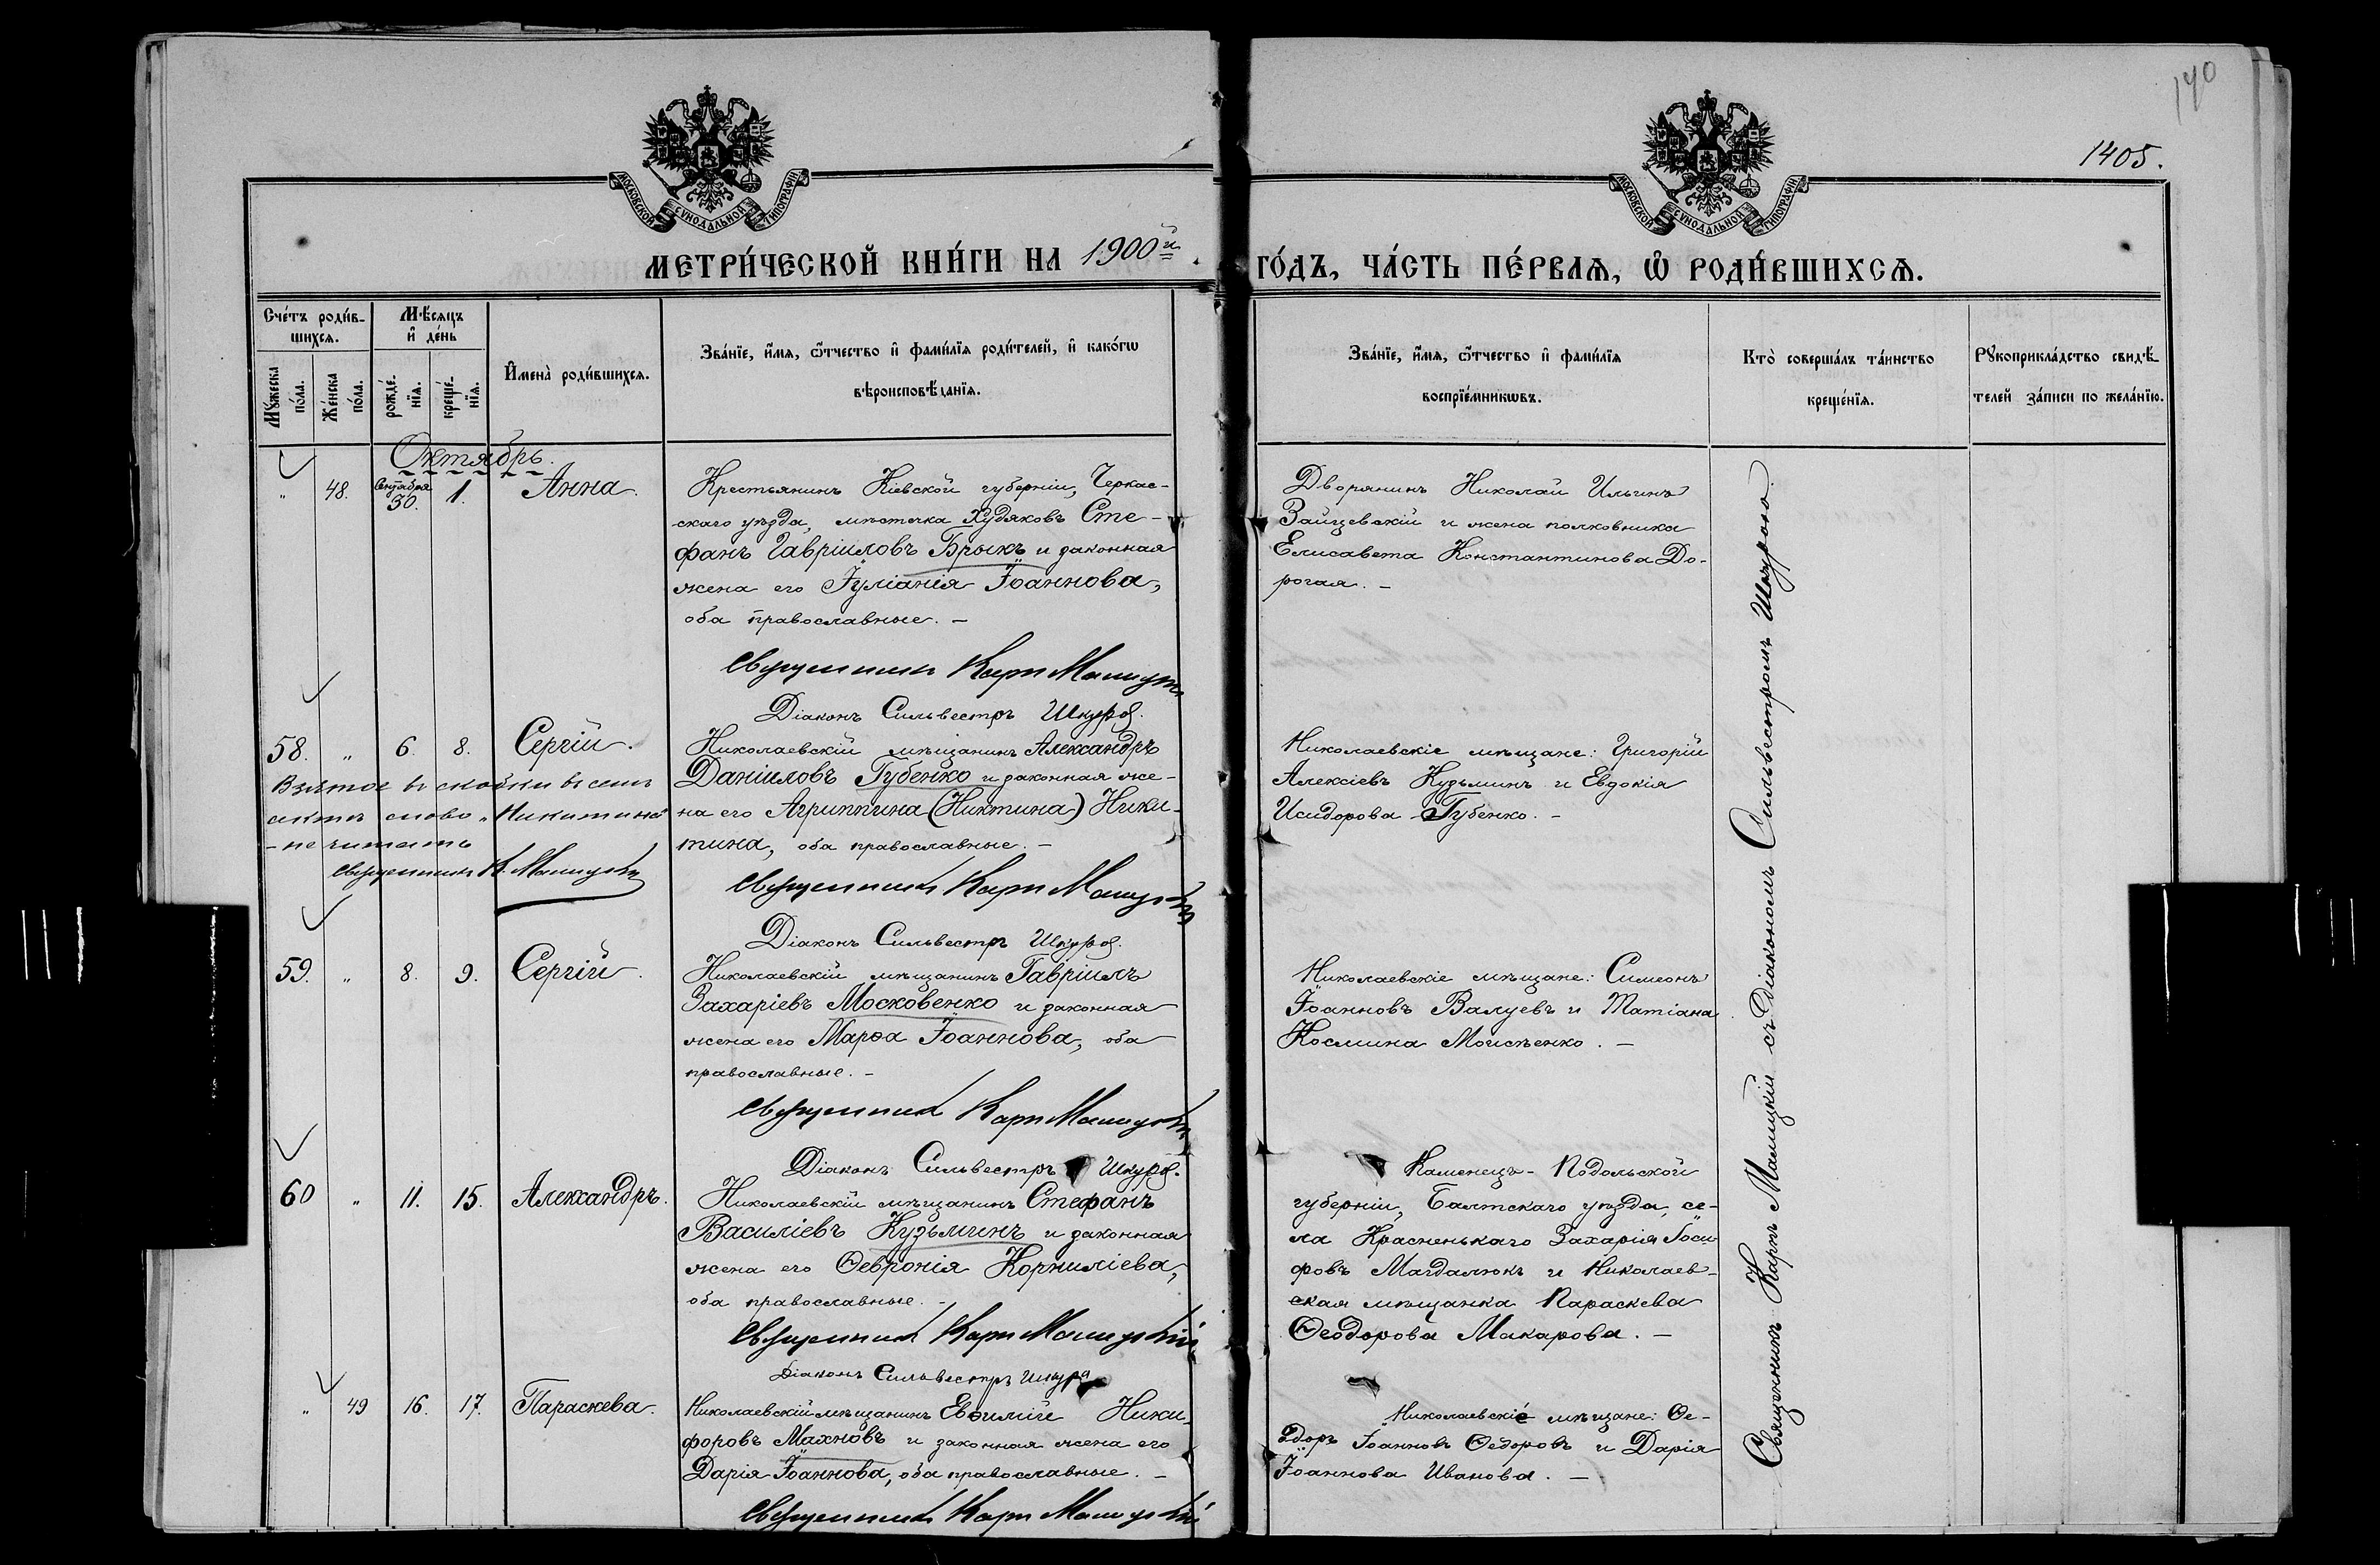 140
1405.
МОСКОВСКОЙ СУНОДАЛЬНОЙ ТИПОГРАФІИ
МОСКОВСКОЙ СУНОДАЛЬНОЙ ТИПОГРАФІИ
МЕТРИ́ЧЕСКОЙ КНИ́ГИ НА 1900й.
ГО́ДЪ, ЧА́СТЬ ПЕ́РВАѦ, Ѿ РОДИ́ВШИХСѦ.
Сче́тъ роди́в-
шихсѧ.
Мꙋ́жеска
по́ла.
Же́нска
по́ла.
Мѣ́сѧцъ
и҆ де́нь
рожде́-
нїѧ.
креще́-
нїѧ.
И҆мена̀ роди́вшихсѧ.
Зва́нїе, и҆́мѧ, ѻ҆́тчество и҆ фами́лїѧ роди́телей, и҆ како́гѡ
вѣроисповѣ́данїѧ.
Зва́нїе, и҆́мѧ, ѻ҆́тчество и҆ фами́лїѧ
воспрїе́мникѡвъ.
Кто̀ соверша́лъ та́инство
креще́нїѧ.
Рꙋкоприкла́дство свидѣ́-
телей за́писи по жела́нїю.
Октябрь.
" 48. Сентября 30. 1. Анна.
Крестьянинъ Кіевской губерніи, Черкас-
скаго уѣзда, мѣстечка Худяковъ Сте-
фанъ Гавріиловъ Брыкъ и законная
жена его Іуліанія Іоаннова,
оба православные. —
Священникъ Карпъ Машицкій
Діаконъ Сильвестръ Шкура.
Дворянинъ Николай Ильинъ
Зайцевскій и жена полковника
Елисавета Константинова До-
рогая. —
58. " 6. 8. Сергій.
Взятое въ скобки въ семъ
актѣ слово „Никитина"
- не читать
Священникъ К. Машицкій
Николаевскій мѣщанинъ Александръ
Даніиловъ Губенко и законная же-
на его Агриппина (Никтина) Ники-
тина, оба православные. —
Священникъ Карпъ Машицкій
Діаконъ Сильвестръ Шкура.
Николаевскіе мѣщане: Григорій
Алексіевъ Кузьминъ и Евдокія
Исидорова Губенко. —
59. " 8. 9. Сергій.
Николаевскій мѣщанинъ Гавріилъ
Захаріевъ Московенко и законная
жена его Марѳа Іоаннова, оба
православные. —
Священникъ Карпъ Машицкій
Діаконъ Сильвестръ Шкура.
Николаевскіе мѣщане: Симеонъ
Іоанновъ Валуевъ и Татіана
Космина Моисѣенко. —
60 " 11. 15. Александръ.
Николаевскій мѣщанинъ Стефанъ
Василіевъ Кузьминъ и законная
жена его Ѳевронія Корниліева,
оба православные. —
Священникъ Карпъ Машицкій
Діаконъ Сильвестръ Шкура
Каменецъ-Подольской
губерніи, Балтскаго уѣзда, се-
ла Красненькаго Захарія Іоси-
фовъ Магдалюкъ и Николаев-
ская мѣщанка Параскева
Ѳеодорова Макарова. —
" 49 16. 17. Параскева.
Николаевскій мѣщанинъ Евѳимій Ники-
форовъ Махновъ и законная жена его
Дарія Іоаннова, оба православные. —
Священникъ Карпъ Машицкій
Николаевскіе мѣщане: Ѳе-
одоръ Іоанновъ Ѳедоровъ и Дарія
Іоаннова Иванова. —
Священникъ Карпъ Машицкій съ Діакономъ Сильвестромъ Шкурою.